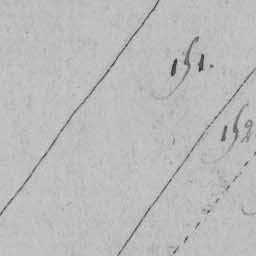 151.
152